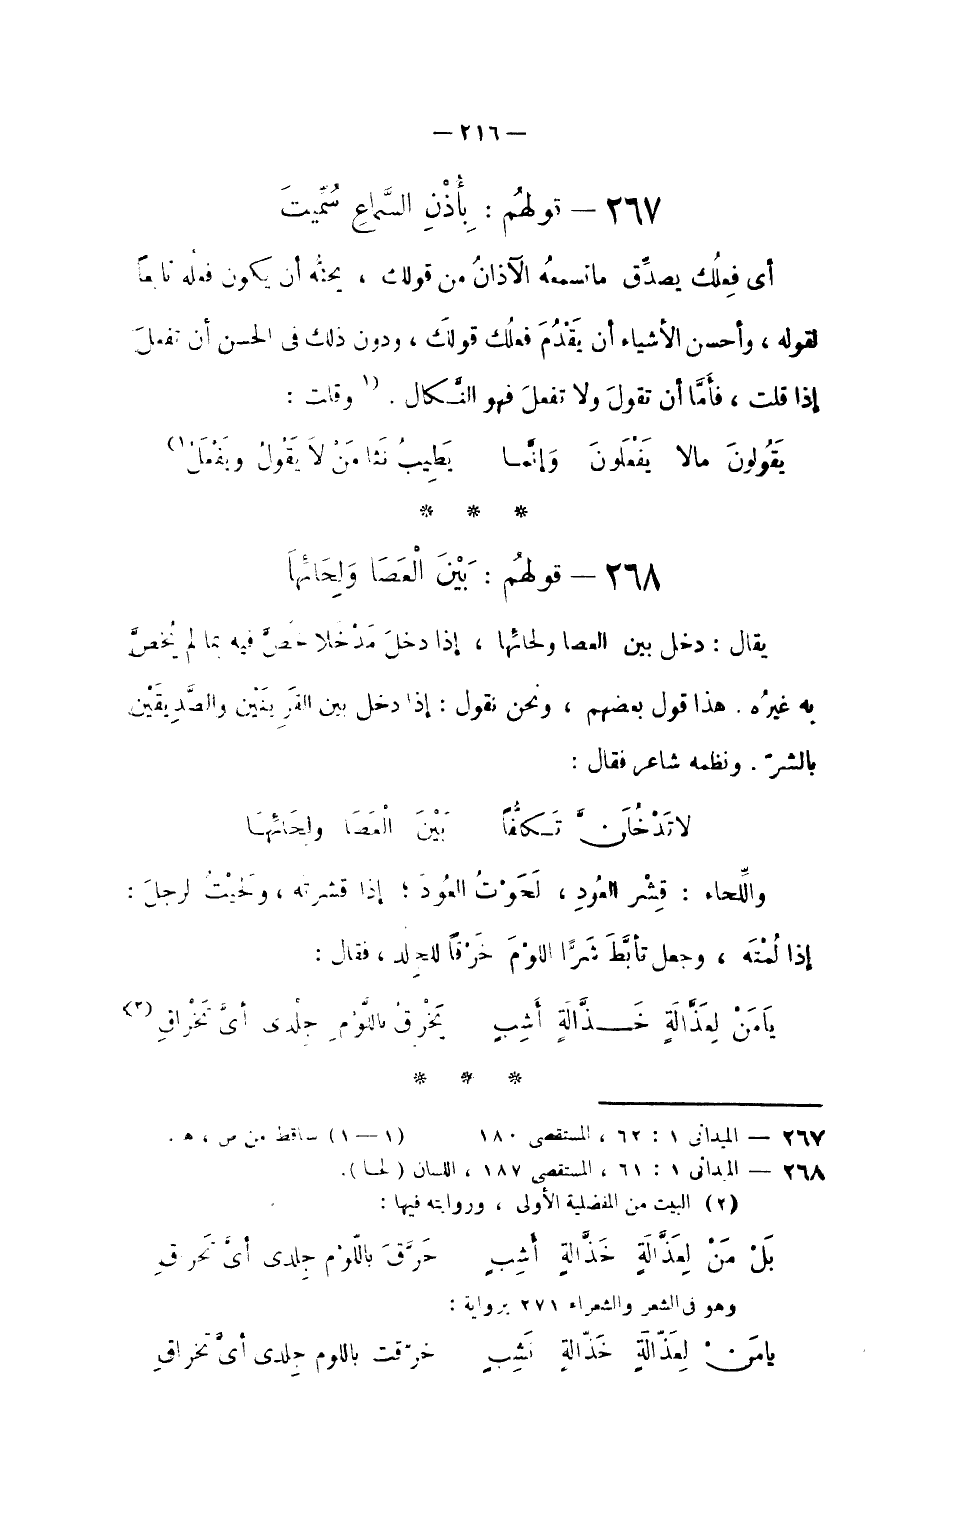 — ٢١٦ —
٢٦٧ — قولهُم : بِأُذُنِ السَّماعِ سُمِّيتَ
أى فِعلُك يصدِّق ماتسمعهُ الآذانُ من قولك ، يحثُّه أن يكون فعلُه تابعاً
لقوله ، وأحسن الأشياء أن يَقْدُمَ فعلُك قولَك ، ودون ذلك فى الحسن أن تفعلَ
إذا قلت ، فأَمَّا أن تقولَ ولا تفعلَ فهو النَّـكال . (١ وقلت :
يَقُولونَ مالا يَفْعَلونَ وَإنَّمـا يَطِيبُ نَثا مَنْ لاَ يَقُولُ ويَفْعَلُ ١)
* * *
٢٦٨ — قولهُم : بَيْنَ الْعَصَا وَلِحَائِهاَ
يقال : دخل بين العصا ولحائها ، إذا دخلَ مَدْخلا خَصَّ فيه بما لم يُخصَّ
به غيرُه . هذا قول بعضهم ، ونحن نقول : إذا دخل بين القَرِينَيْن والصَّدِيقَيْن
بالشرّ . ونظمه شاعر فقال :
لاتَدْخُلَنَّ تَـكلُّفاً بَيْنَ الْعَصَا ولِحَائِهـَا
واللِّحاء : قِشْر العُودِ ، لَحَوْتُ العُودَ ؛ إذا قشرته ، ولَحَيْتُ لرجلَ :
إذا لُمْتَه ، وجعل تأبَّطَ شرًّا اللوْمَ خَرْقاً للجِلد ، فقال :
يَامَنْ لِعَذَّالَةٍ خَـــذَّالَةٍ أَشِبٍ يَخْرِقُ باللَّوْمِ جِلْدى أىَّ تَخْراقِ (٢)
* * *
٢٦٧ — الميدانى ١ : ٦٢ ، المستقصى ١٨٠ (١ — ١) ساقط من ص ، هـ .
٢٦٨ — الميدانى ١ : ٦١ ، المستقصى ١٨٧ ، اللسان ( لحـا ).
(٢) البيت من المفضلية الأولى ، وروايته فيها :
بَلْ مَنْ لِعَذَّالَةٍ خَذَّالةٍ أَشِبٍ حَرَّقَ باللّوْم جِلدى أىَّ تَحراقِ
وهو فى الشعر والشعراء ٢٧١ برواية :
يامَنْ لِعَذّالَةٍ خَذّالةٍ نَشِبٍ خرّقت باللوم جِلدى أىَّ تخراقِ